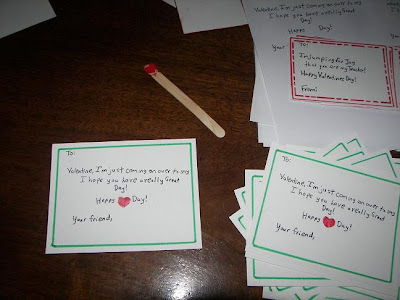 Valentine, I'm just coming on over to say
I hope you have a really Great
Happy Day!
Your
To:
I'm Jumping for Joy
that you are my Teacher!
Happy Valentines Day!
From:
To:
Valentine, I'm just coming on over to say
I hope you have a really Great
Day!
Happy Day!
Your friend,
To:
Valentine, I'm just coming on over to say
I hope you have a really Great
Day!
Happy Day!
Your friend,